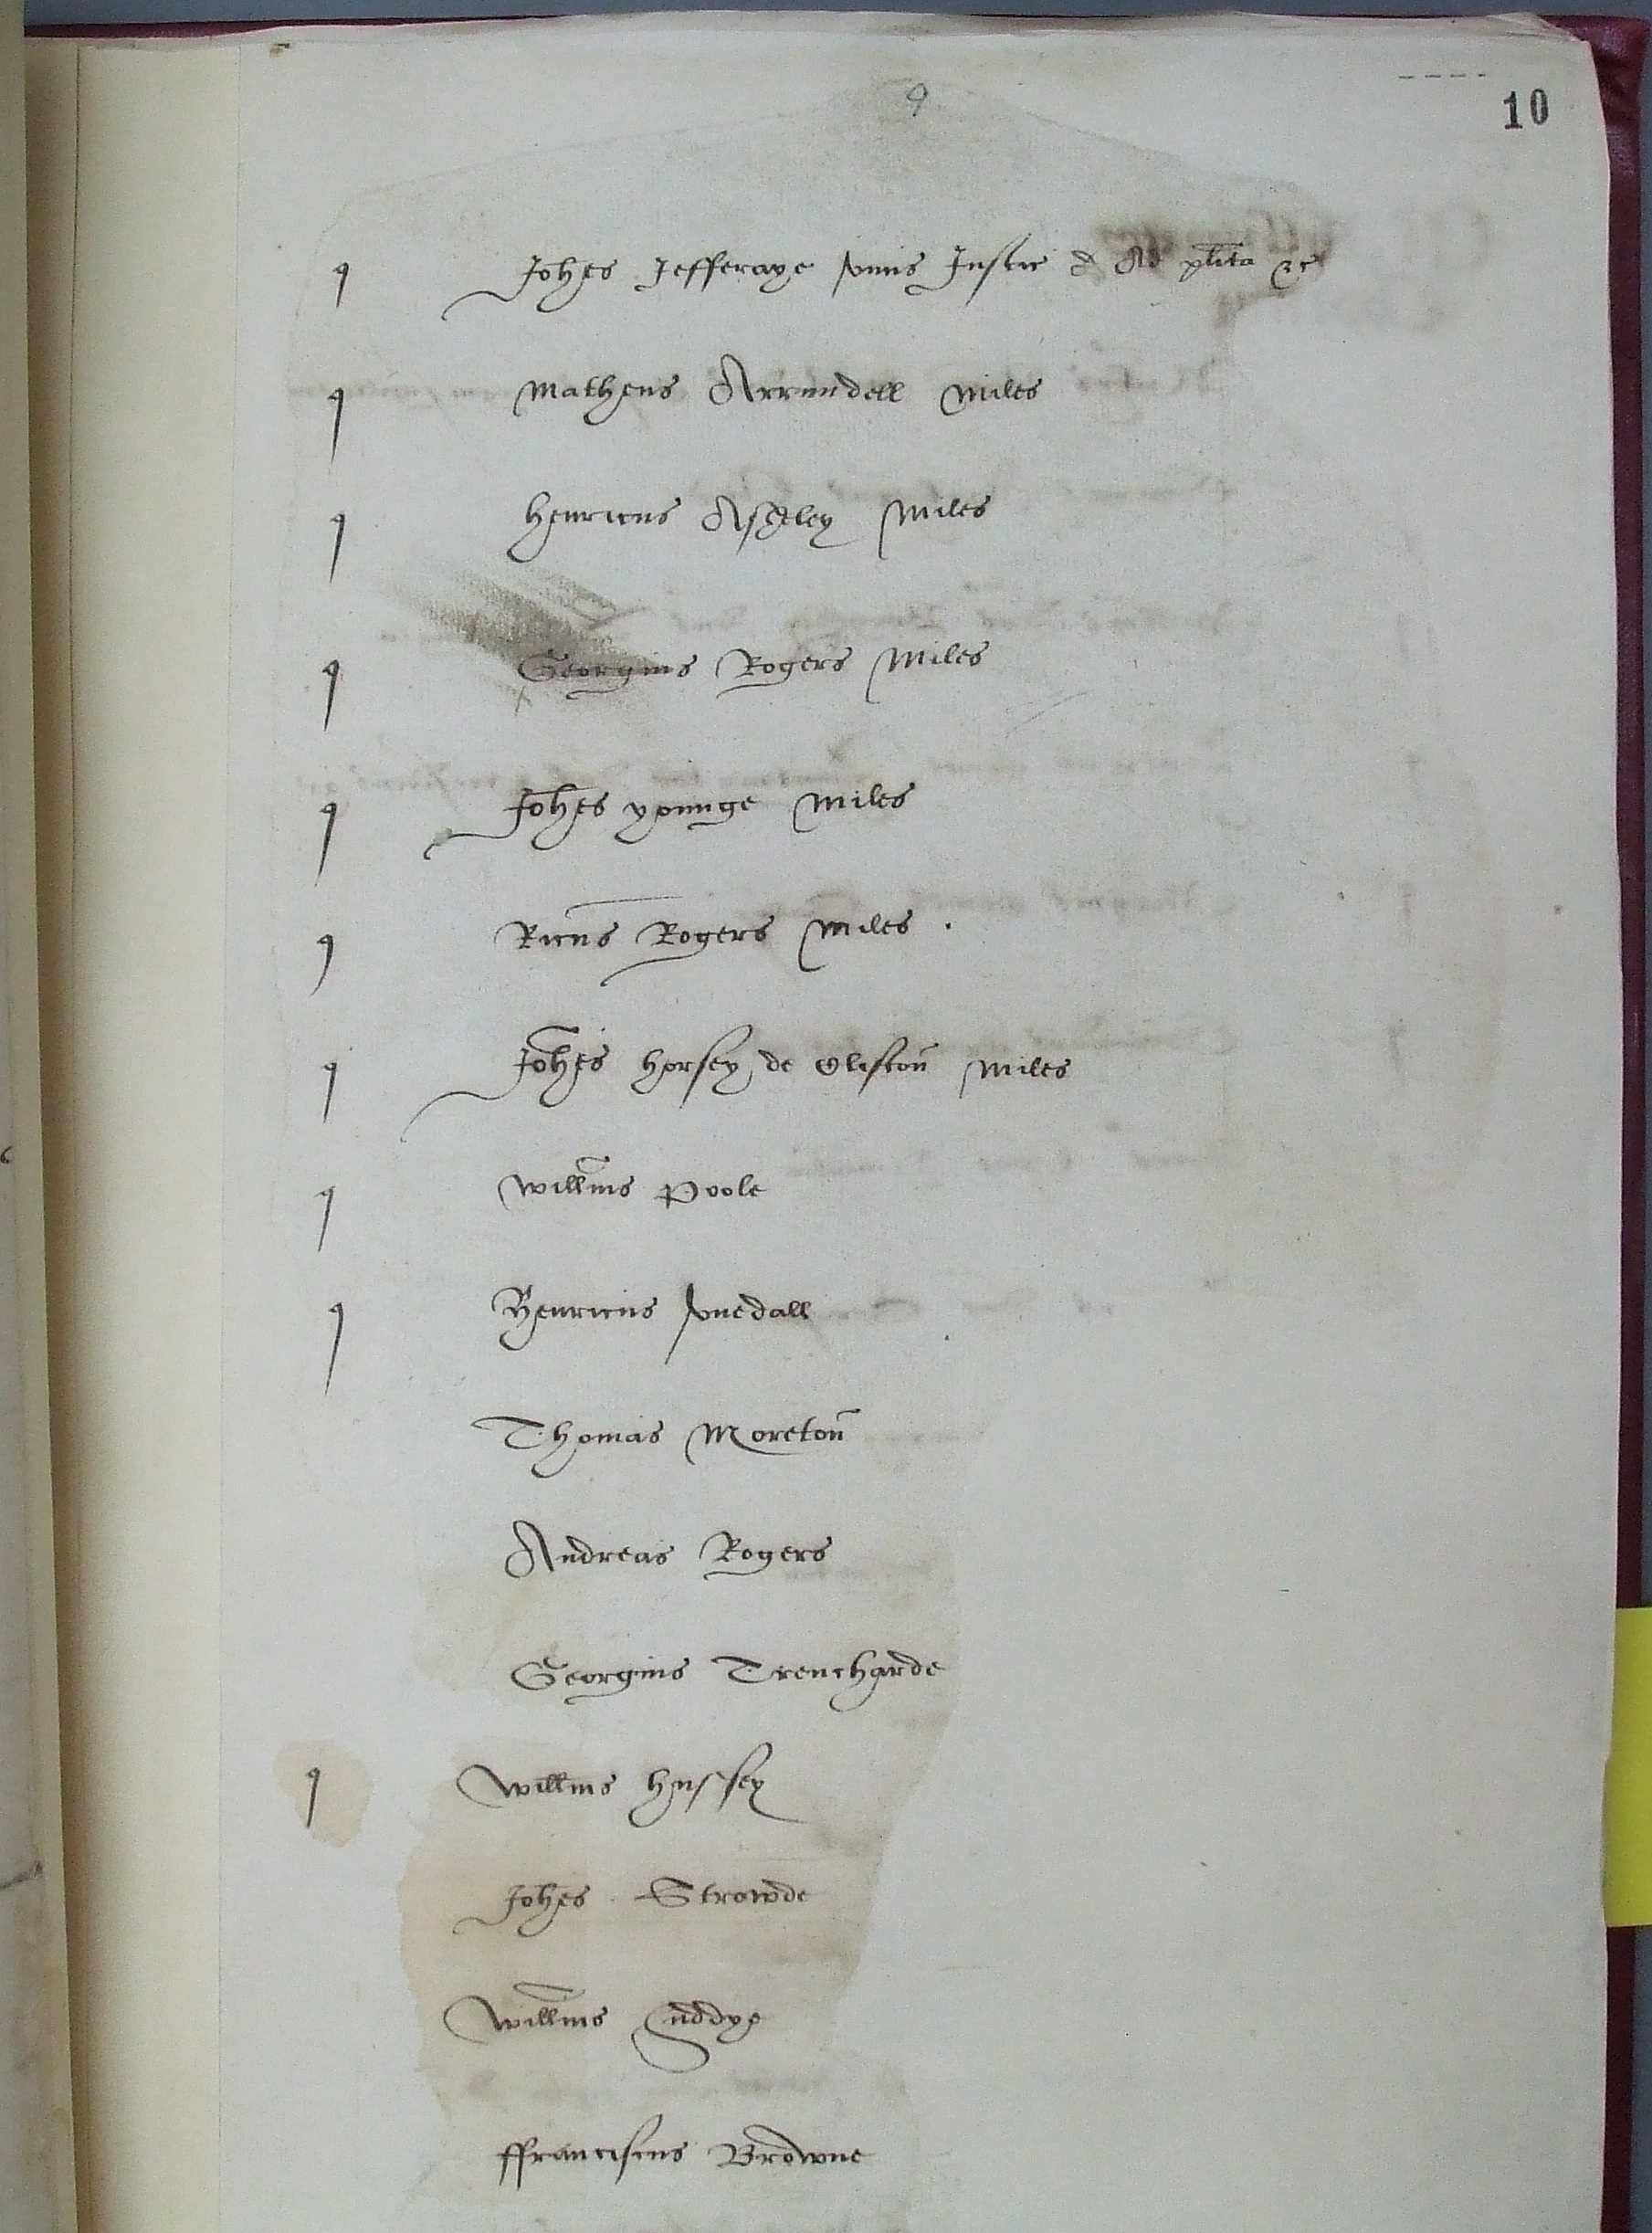 9
10
q Johes Jefferaye vnus Justic d Ad plita &c
q Matheus Arrundell Miles
q Henricus Asheley Miles
q Georgius Rogers Miles
q Johes Younge Miles
q Ricus Rogers Miles .
q Johes Horsey de Clifton Miles
q Willms Poole
q Henricus Vuedall
Thomas Moreton
Andreas Rogers
Georgius Trencharde
q Willms Hussey
Johes Strowde
Willms
ffranciscus Browne